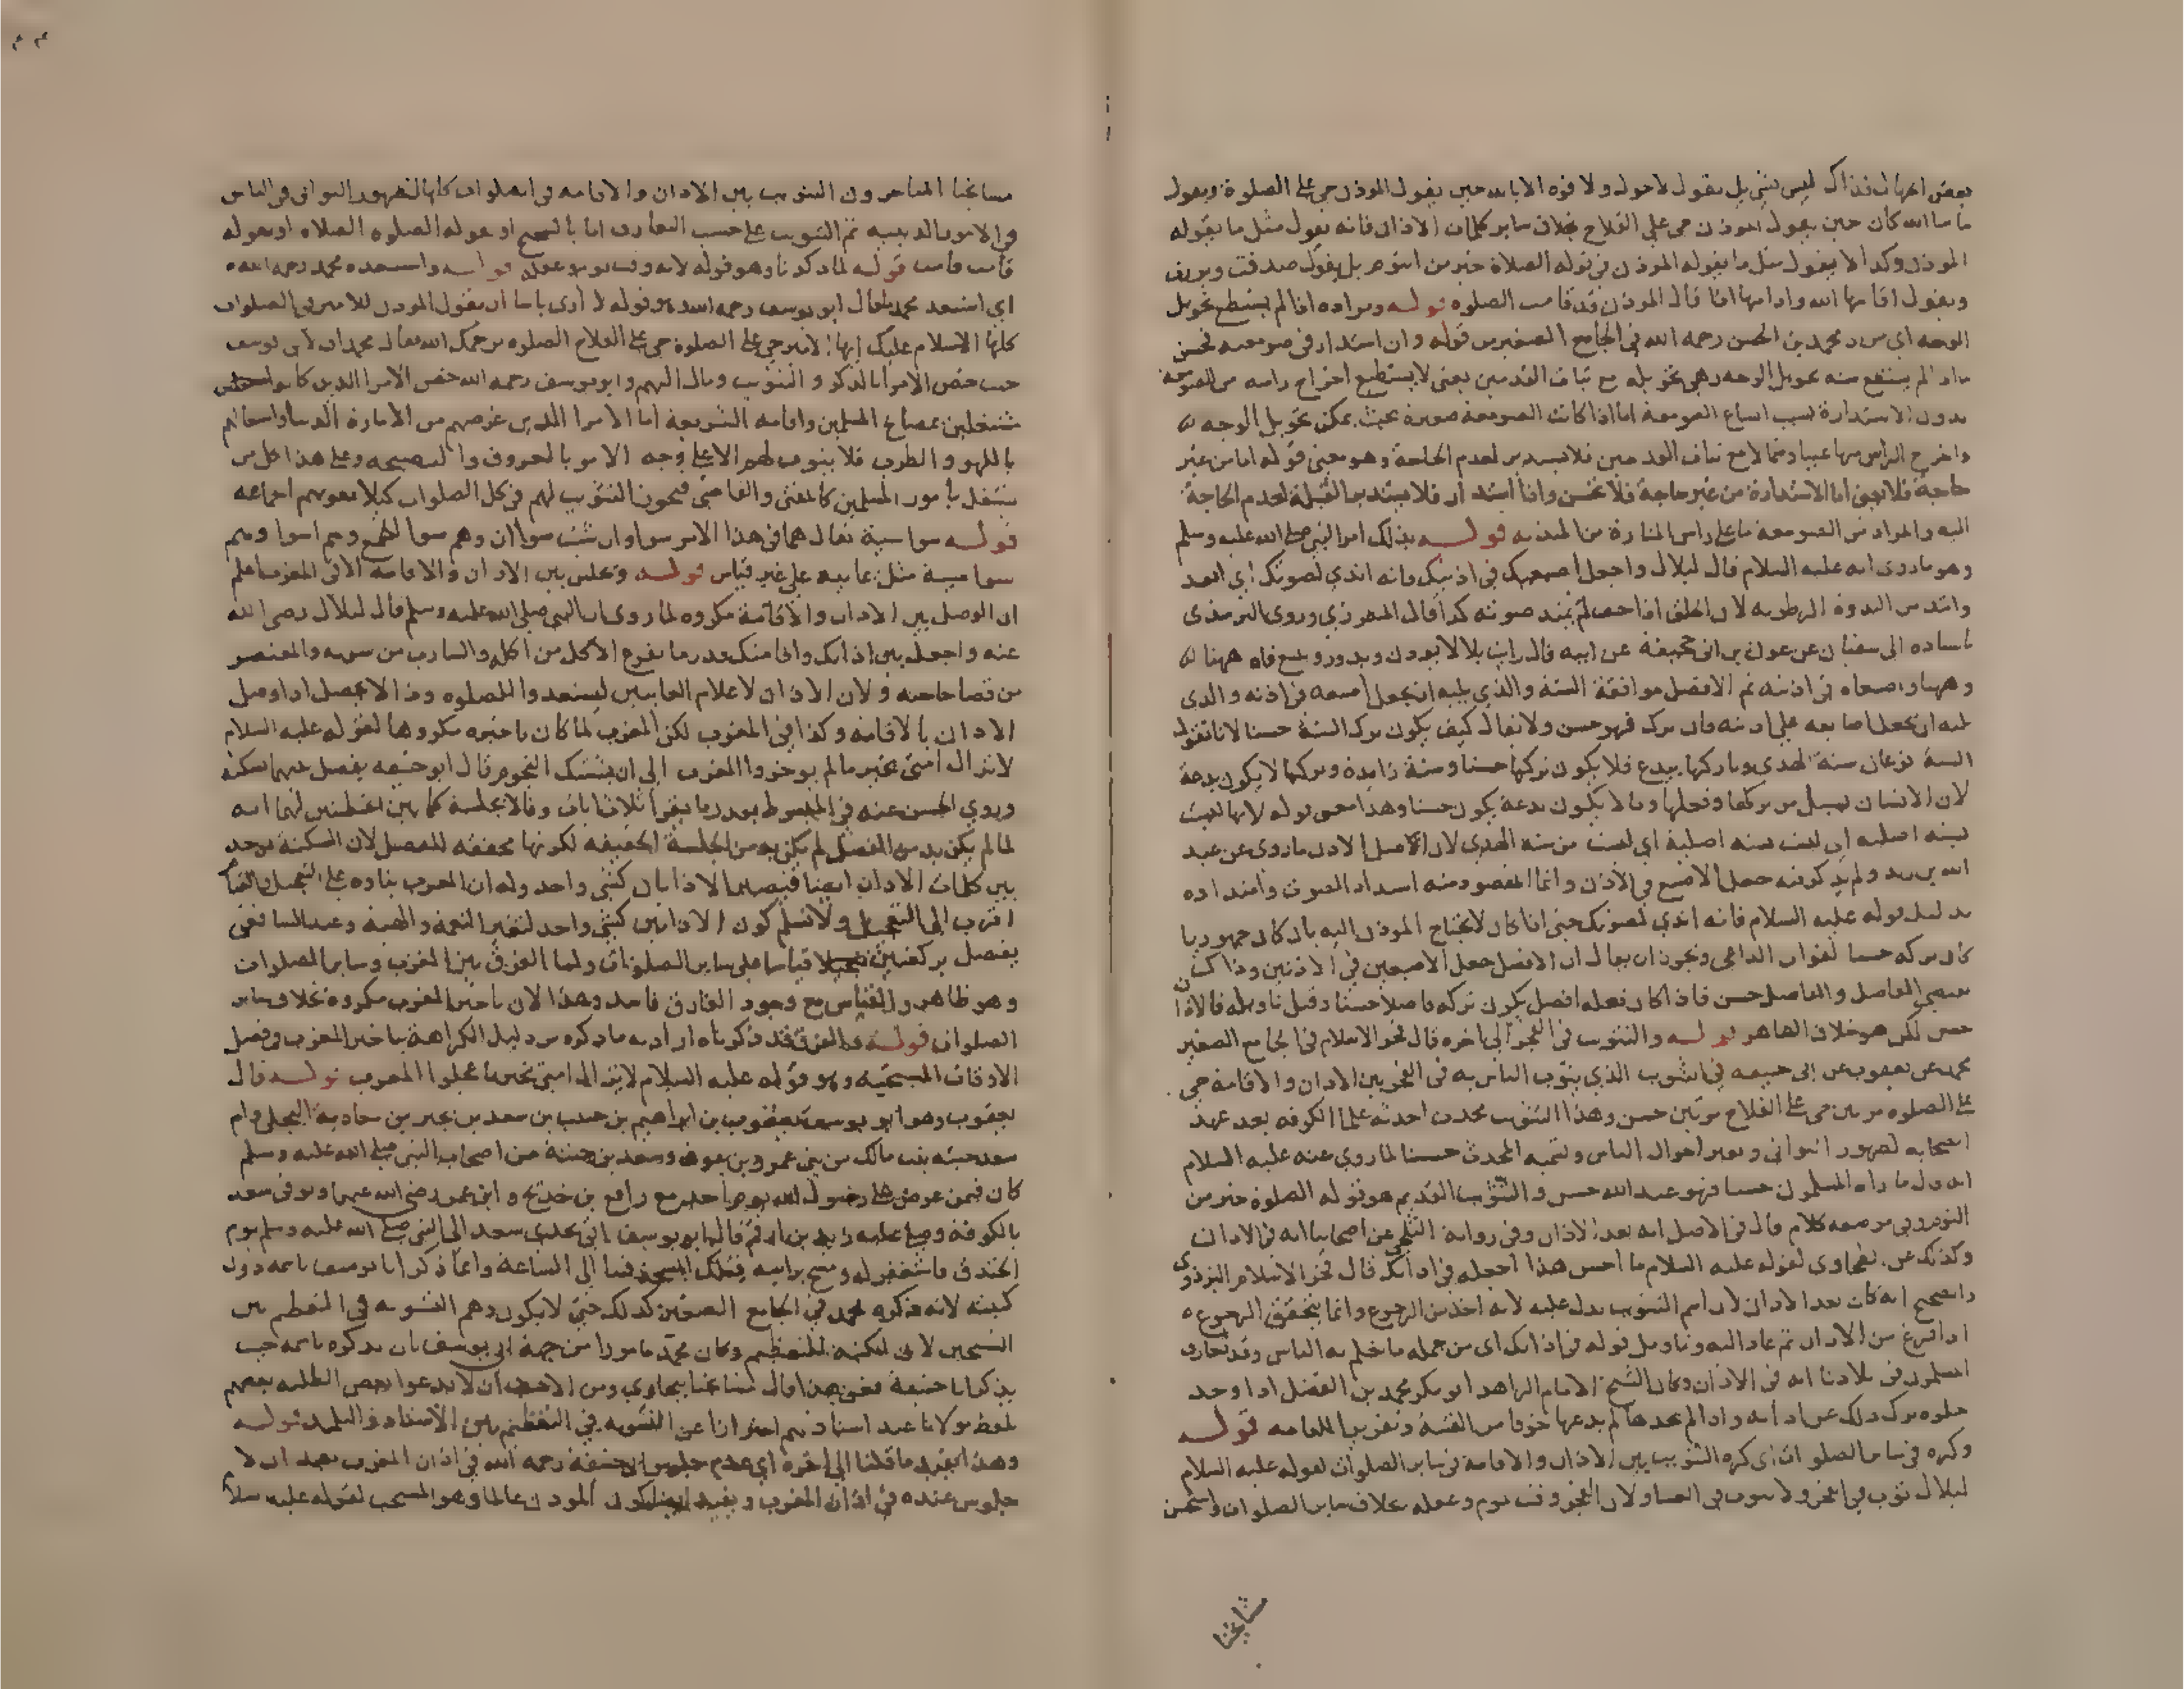 بعض الجهال فذاك ليس بشي بل يقول لا حول ولا قوة الا بالله حين يقول الموذن حي على الصلوة ويقول
ما شا الله كان حين يقول الموذن حي على الفلاح بخلاف ساير كلمات الاذان فانه يقول مثل ما يقوله
الموذن وكذا لا يقول مثل ما يقوله الموذن في قوله الصلاة خير من النوم بل يقول صدقت وبررت
ويقول اقامها الله وادامها اذا قال الموذن قد قامت الصلوه قوله ومراده اذا لم يستطع تحويل
الوجه اي مراد محمد بن الحسن رحمه الله في الجامع الصغير من قوله وان استدار في صومعته فحسن
ما اذا لم يستطع منه تحويل الوجه مع ثبات القدمين يعني لا يستطيع اخراج راسه من الصومعة
بدون الاستدارة لسبب اتساع الصومعة اما اذا كانت الصومعة صغيرة بحيث يمكن تحويل الوجه
واخرج الراس منها يمينا وشمالا مع ثبات القدمين فلا يستدير لعدم الحاجة وهو معنى قوله اما من غير
حاجة فلا يعني اما الاستدارة من غير حاجة فلا تحسن واذا استدار فلا يستدبر القبلة لعدم الحاجة
اليه والمراد من الصومعة ما على راس المنارة من المئذنه قوله بذلك امر النبي صلى الله عليه وسلم
وهو ما روى انه عليه السلام قال لبلال واجعل اصبعيك في اذنيك فانه اندي لصوتك اي ابعد
واشد من الندوة الرطوبه لان الحلق اذا جف لم يمتد صوته كذا قال المطرزي وروى الترمذي
باسناده الى سفيان عن عون بن ابي جحيفة عن ابيه قال رايت بلالا يوذن ويدور ويتبع فاه ههنا
وههنا واصبعاه في اذنيه ثم الافضل موافقة السنة والذي يليه ان يجعل اصبعه في اذنه والذي
يليه ان يجعل اصابعه على اذنيه فان ترك فهو حسن ولا يقال كيف يكون ترك السنة حسنا لانا نقول
السنة نوعان سنة الهدى وتاركها يبدع فلا يكون تركها حسنا وسنة زايدة وتركها لا يكون بدعة
لان الانسان بسبيل من تركها وفعلها وما لا يكون بدعة يكون حسنا وهذا معنى قوله لانها ليست
بسنه اصليه اي ليست بسنه اصلية اي ليست من سنة الهدى لان الاصل الاذان ما روى عن عبد
الله بن زيد ولم يذكر فيه جعل الاصبع في الاذن وانما المقصود منه اسداد الصوت وامتداده
بدليل قوله عليه السلام فانه اندي لصوتك حتى اذا كان لا يحتاج الموذن اليه بان كان جهوريا
كان تركه حسنا لفوات الداعي ويجوز ان يقال ان الافضل جعل الاصبعين في الاذنين وذاك
حسن لكن هو خلاف الظاهر قوله والتثويب في الفجر الى اخره قال فخر الاسلام في الجامع الصغير
محمد عن يعقوب عن ابي حنيفة في التثويب الذي يثوب الناس به في الفجر بين الاذان والاقامة حي
على الصلوه مرتين حي على الفلاح مرتين حسن وهذا التثويب محدث احدثه علما الكوفه بعد عهد
الصحابه لظهور التواني وتغير احوال الناس وتسميه المحدث حسنا لما روي عنه عليه السلام
انه قال ما راه المسلمون حسنا فهو عند الله حسن والتثويب القديم هو قوله الصلوة خير من
النوم وفي موضعه كلام قال في الاصل انه بعد الاذان وفي رواية الثلجي عن اصحابنا انه في الاذان
وكذلك عن الطحاوي لقوله عليه السلام ما احسن هذا اجعله في اذانك قال فخر الاسلام البزدوى
والصحيح انه كان بعد الاذان لان اسم التثويب يدل عليه لانه اخذ من الرجوع وانما يتحقق الرجوع
اذا فرغ من الاذان ثم عاد اليه وتاويل قوله في اذانك اي من جملة ما تعلم به الناس وقد تعارف
المسلمون في بلادنا انه في الاذان وكان الشيخ الامام الزاهد ابو بكر محمد بن الفضل اذا وجد
خلوه ترك ذلك عن اذانه واذا لم يجدها لم يدعها خوفا من الفتنة وتقريبا للعامه قوله
وكره في ساير الصلوات اي كره التثويب بين الاذان والاقامة في ساير الصلوات لقوله عليه السلام
لبلال ثوب في الفجر ولا تثوب في العشا ولان الفجر وقت نوم وغفله بخلاف ساير الصلوات واستحسن
مشايخنا
مشايخنا المتاخرون التثويب بين الاذان والاقامه في الصلوات كلها لظهور التواني في الناس
في الامور الدينيه ثم التثويب على حسب التعارف اما بالتنحنح او بقوله الصلوه الصلاه او بقوله
قامت قامت قوله لما ذكرنا وهو قوله لانه وقت نوم وغفلة قوله واستبعده محمد رحمه الله
اي استبعد محمد ما قال ابو يوسف رحمه الله وهو قوله لا ارى باسا ان يقول الموذن للامير في الصلوات
كلها السلام عليك ايها الامير حي على الصلوة حي على الفلاح الصلوه يرحمك الله فقال محمد اف لابي يوسف
حيث خص الامرا بالذكر والتثويب ومال اليهم وابو يوسف رحمه الله خص الامرا الذين كانوا
مشتغلين بمصالح المسلمين واقامه الشريعة اما الامرا الذين غرضهم من الامارة الدنيا واشتغالهم
باللهو والطرب فلا يثوب لهم الا على وجه الامر بالمعروف والنصيحه وعلى هذا كل من
يشتغل بامور المسلمين كالمفتي والقاضي فيجوز التثويب لهم في كل الصلوات كيلا تفوتهم الجماعه
قوله سواسية يقال هما في هذا الامر سوا وان شئت سواان وهم سوا للجمع وهم اسوا وهم
سواسية مثل ثمانيه على غير قياس قوله ويجلس بين الاذان والاقامة الا في المغرب اعلم
ان الوصل بين الاذان والاقامة مكروه لما روى ان النبي صلى الله عليه وسلم قال لبلال رضى الله
عنه واجعل بين اذانك واقامتك قدر ما يفرغ الاكل من اكله والشارب من شربه والمعتصر
من قضا حاجته ولان الاذان لاعلام الغايبين ليستعدوا للصلوه وذا لا يحصل اذا وصل
الاذان بالاقامة وكذا في المغرب لكن المغرب لما كان تاخيره مكروها لقوله عليه السلام
لا تزال امتي بخير ما لم يوخروا المغرب الى ان يشتبك النجوم قال ابو حنيفه يفصل بينهما بسكتة
وروي الحسن عنه في المبسوط بقدر ما يقرا ثلاث ايات وقالا بجلسة كما بين الخطبتين لهما انه
لما لم يكن بد من الفصل لم يكن بد من الجلسة الخفيفه لكونها محققه للفصل لان السكتة توجد
بين كلمات الاذان ايضا
اقرب الى التعجيل ولا نسلم كون الاذانين كشي واحد لتغير النغمه والهيئه وعند الشافعي
يفصل بركعتين قياسا على ساير الصلوات ولما الفرق بين المغرب وساير الصلوات
وهو ظاهر والقياس مع وجود الفارق فاسد وهذا لان تاخير المغرب مكروه بخلاف ساير
الصلوات قوله والفرق قد ذكرناه اراد به ما ذكره من دليل الكراهة بتاخير المغرب في فصل
الاوقات المستحبه وهو قوله عليه السلام لا يزال امتي بخير ما عجلوا المغرب قوله قال
يعقوب وهو ابو يوسف يعقوب بن ابراهيم بن حبيب بن سعد بن بجير بن معاوية البجلي وام
سعد حبته بنت مالك من بني عمرو بن عوف وسعد بن حبتة من اصحاب النبي صلى الله عليه وسلم
كان فيمن عرض على رسول الله يوم احد مع رافع بن خديج وابن عمر رضي الله عنهما وتوفي سعد
بالكوفة وصلى عليه زيد بن ارقم قال ابو يوسف اتى بجدي سعد الى النبي صلى الله عليه وسلم يوم
الخندق فاستغفر له ومسح براسه فتلك المسحة فينا الى الساعة وانما ذكر ابا يوسف باسمه دون
كنيته لانه ذكره محمد في الجامع الصغير كذلك حتى لا يكون وهم التسويه في التعظيم بين
الشيخين لان الكنية للتعظيم وكان محمد مامورا من جهة ابي يوسف بان يذكره باسمه حيث
يذكر ابا حنيفة فعن هذا قال مشايخنا ومن الادب ان لا يدعوا بعض الطلبه بعضهم
بلفظ مولانا عند استاذهم احترازا عن التسويه في التعظيم بين الاستاذ والتلميذ قوله
وهذا يفيد ما قلنا الى اخره اي عدم جلوس ابي حنيفة رحمه الله في اذان المغرب يفيد ان لا
جلوس عنده في اذان المغرب ويفيد ايضا كون الموذن عالما وهو المستحب لقوله عليه